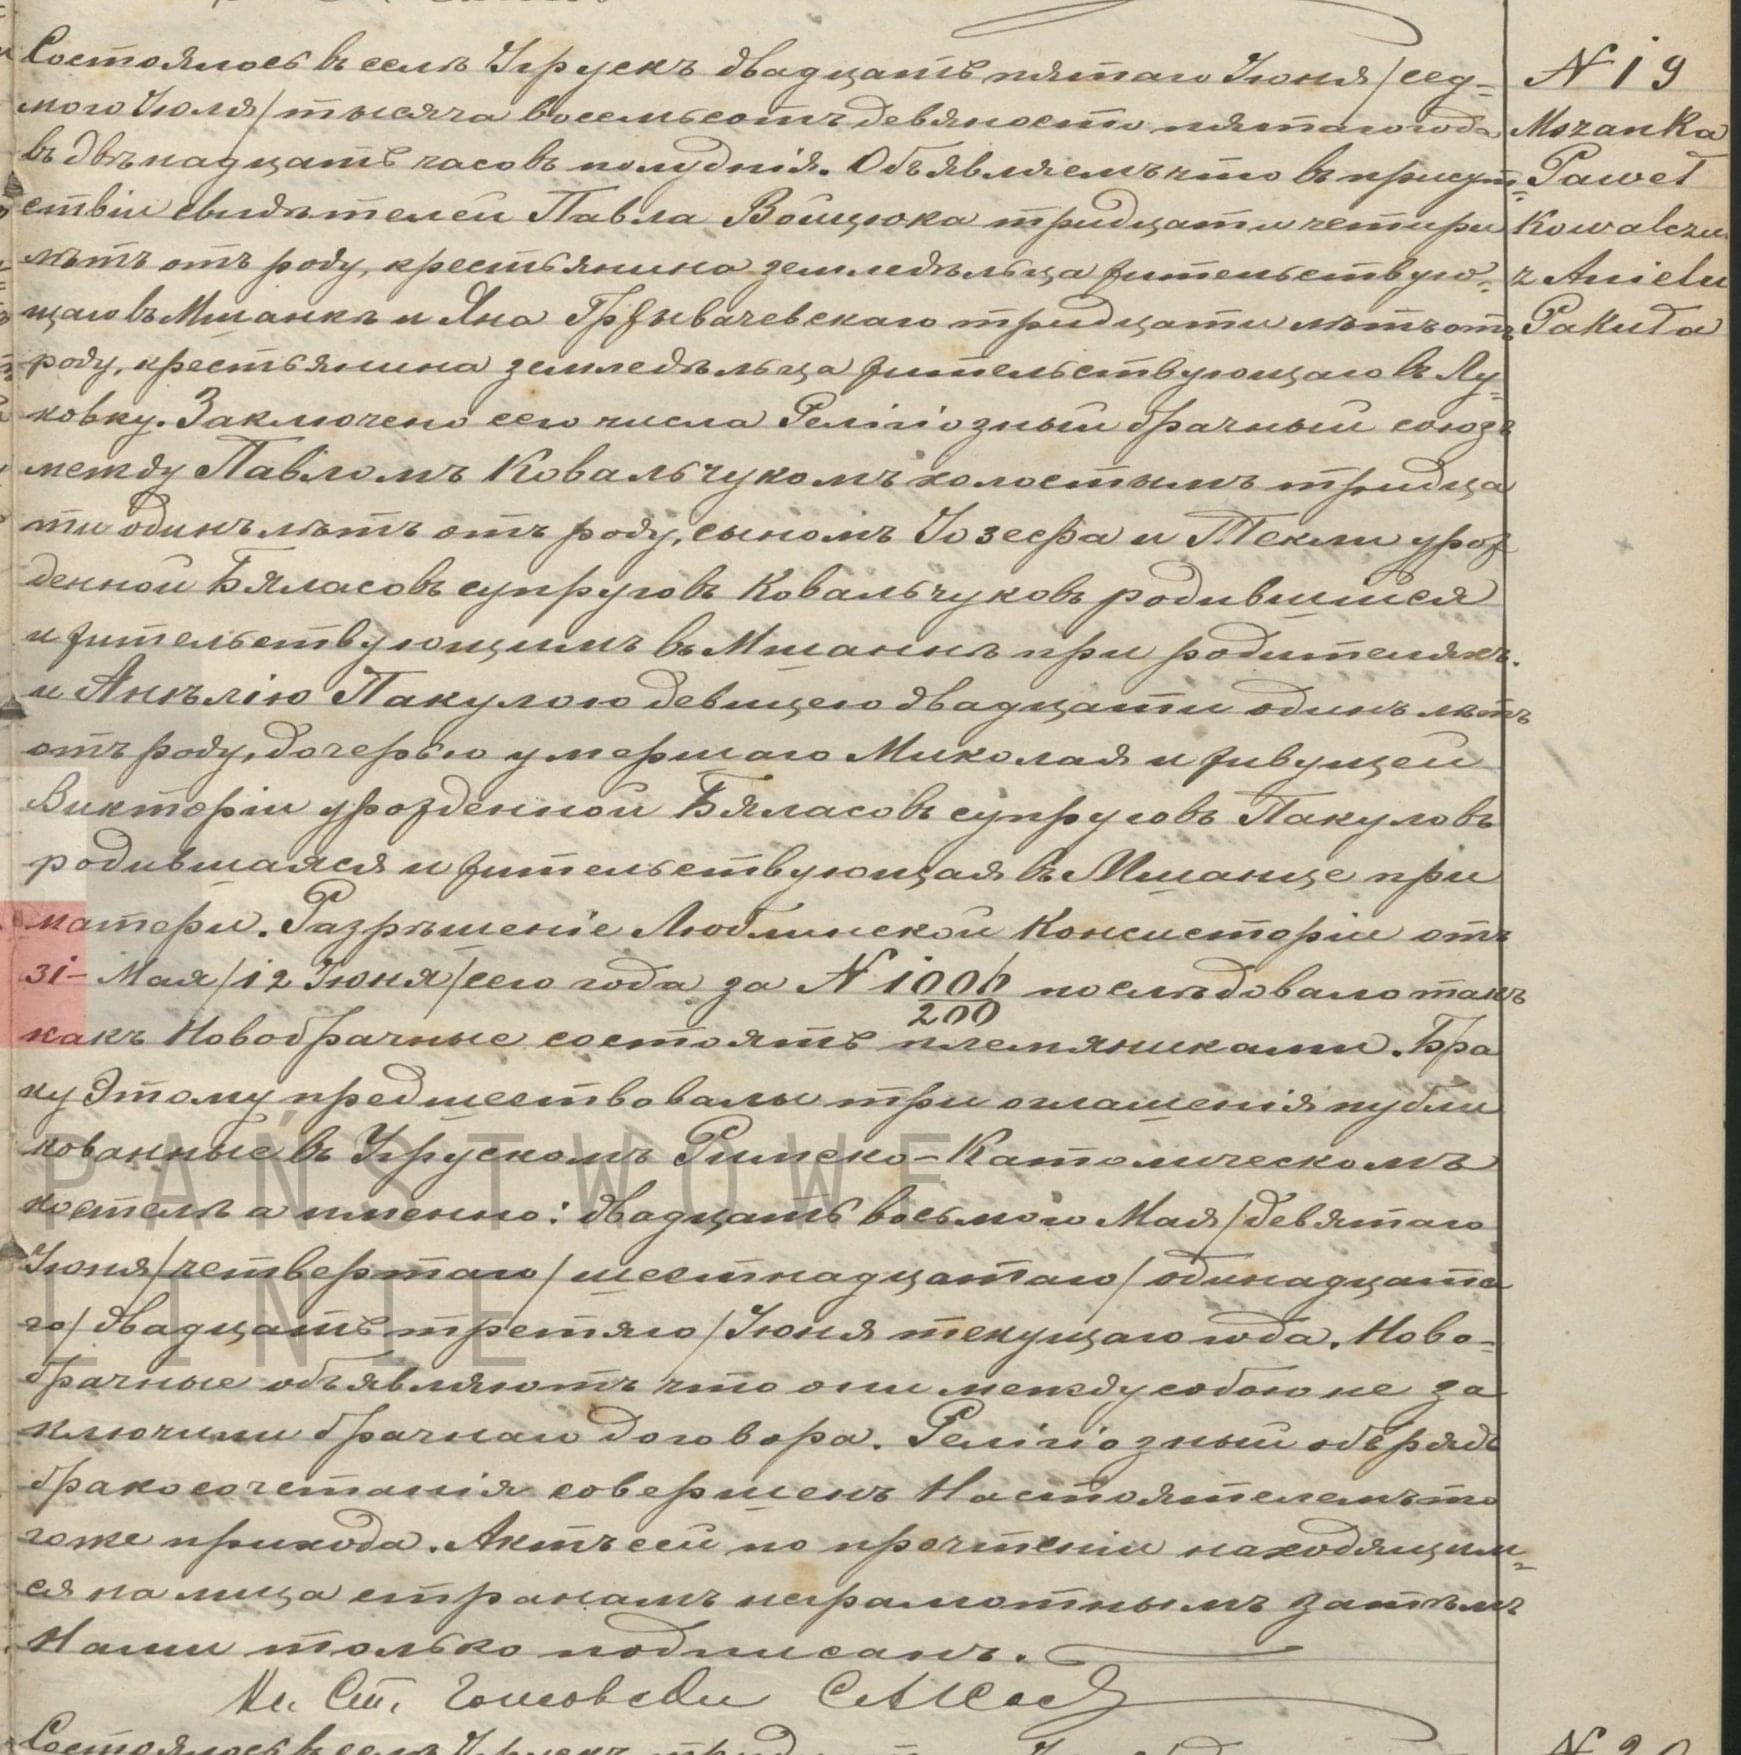 Состоялось въ селѣ Угрускъ двадцать пятаго Іюня /сед=
мого Іюля/ тысяча восемьсотъ девяносто пятаго года
въ двѣнадцать часовъ полуднія. Объявляемъ что въ присут=
ствіи свидѣтелей Павла Войцюка тридцати четыри
лѣтъ отъ роду, крестьянина земледѣльца жительствую=
щаго въ Мшанкѣ и Яна Гржывачевскаго тридцати лѣтъ отъ
роду, крестьянина земледѣльца жительствующаго въ Лу=
ковку. Заключено сего числа Религіозный брачный союзъ
между Павломъ Ковальчукомъ холостымъ тридца
ти одинъ лѣтъ отъ роду, сыномъ Іозефа и Текли урож
денной Бяласовъ супруговъ Ковальчуковъ родившійся
и жительствующимъ въ Мшанкѣ при родителяхъ.
и Анѣлію Пакулою девицею двадцати одинъ лѣтъ
отъ роду, дочерью умершаго Миколая и живущей
Викторіи урожденной Бяласовъ супруговъ Пакуловъ
родившаяся и жительствующая въ Мшанце при
матери. Разрѣшеніе Люблинской Консисторіи отъ
31 Мая /12 Іюня/ сего года за N 1006/200 послѣдовало такъ
какъ Новобрачные состоятъ племяниками. Бра
ку Этому предшествовалы три оглашенія публи
кованные въ Угрускомъ Римско-Католическомъ
костелѣ а именно: двадцать восьмого Мая /девятаго
Іюня/ четвертаго /шестнадцатаго/ одинадцата
го /двадцать третяго/ Іюня текущаго года. Ново=
брачные объявляютъ что они между собою не за
ключили брачнаго договора. Религіозный обърядъ
бракосочетанія совершенъ Настоятелемъ то
гоже прихода. Актъ сей по прочтеніи находящим=
ся на лица странамъ неграмотнымъ затѣмъ
Нами только подписанъ.
N 19
Mszanka
Paweł
Kowalczu
z Anielu
Pakuła
PAŃSTWOWE